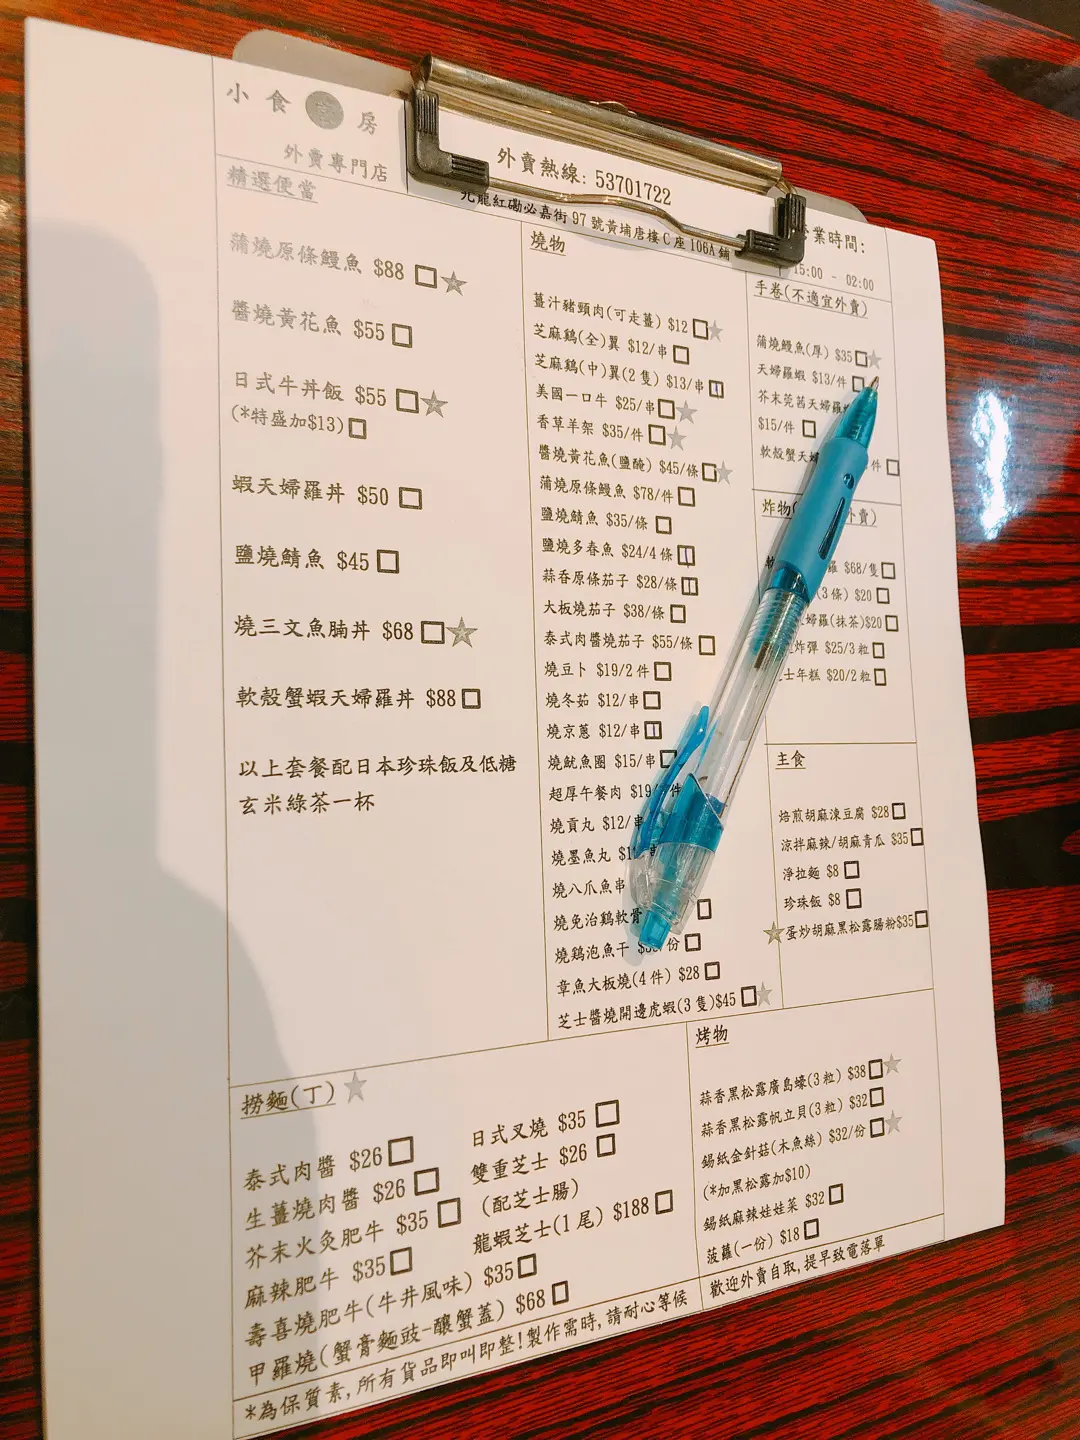 小食 房
外賣專門店
外賣熱線: 53701722
九龍紅磡必嘉街 97 號黃埔唐樓 C 座 106A 鋪
業時間:
15:00 - 02:00
精選便當
蒲燒原條鰻魚 $88 □★
醬燒黃花魚 $55 □
日式牛丼飯 $55 □★
(*特盛加$13) □
蝦天婦羅丼 $50 □
鹽燒鯖魚 $45 □
燒三文魚腩丼 $68 □★
軟殼蟹蝦天婦羅丼 $88 □
以上套餐配日本珍珠飯及低糖
玄米綠茶一杯
燒物
薑汁豬頸肉(可走薑) $12 □★
芝麻鷄(全)翼 $12/串 □
芝麻鷄(中)翼(2 隻) $13/串 □
美國一口牛 $25/串 □★
香草羊架 $35/件 □★
醬燒黃花魚(鹽醃) $45/條 □★
蒲燒原條鰻魚 $78/件 □
鹽燒鯖魚 $35/條 □
鹽燒多春魚 $24/4 條 □
蒜香原條茄子 $28/條 □
大板燒茄子 $38/條 □
泰式肉醬燒茄子 $55/條 □
燒豆卜 $19/2 件 □
燒冬茹 $12/串 □
燒京蔥 $12/串 □
燒魷魚圈 $15/串 □
超厚午餐肉 $19 件
燒貢丸 $12/串
燒墨魚丸 串
燒八爪魚串
燒免治鷄軟骨 □
燒鷄泡魚干 /份 □
章魚大板燒(4 件) $28 □
芝士醬燒開邊虎蝦(3 隻)$45 □★
手卷(不適宜外賣)
蒲燒鰻魚(厚) $35 □★
天婦羅蝦 $13/件 □
芥末莞茜天婦羅
$15/件 □
軟殼蟹天婦 件 □
炸物( 外賣)
羅 $68/隻 □
(3 條) $20 □
婦羅(抹茶)$20 □
炸彈 $25/3 粒 □
士年糕 $20/2 粒 □
主食
焙煎胡麻涷豆腐 $28 □
涼拌麻辣/胡麻青瓜 $35 □
淨拉麵 $8 □
珍珠飯 $8 □
★蛋炒胡麻黑松露腸粉$35 □
撈麵(丁) ★
泰式肉醬 $26 □
生薑燒肉醬 $26 □
芥末火灸肥牛 $35 □
麻辣肥牛 $35 □
壽喜燒肥牛(牛丼風味) $35 □
甲羅燒(蟹膏麵豉-釀蟹蓋) $68 □
日式叉燒 $35 □
雙重芝士 $26 □
(配芝士腸)
龍蝦芝士(1 尾) $188 □
烤物
蒜香黑松露廣島蠔(3 粒) $38 □★
蒜香黑松露帆立貝(3 粒) $32 □
錫紙金針菇(木魚絲) $32/份 □★
(*加黑松露加$10)
錫紙麻辣娃娃菜 $32 □
菠蘿(一份) $18 □
*為保質素,所有貨品即叫即整!製作需時,請耐心等候
歡迎外賣自取,提早致電落單